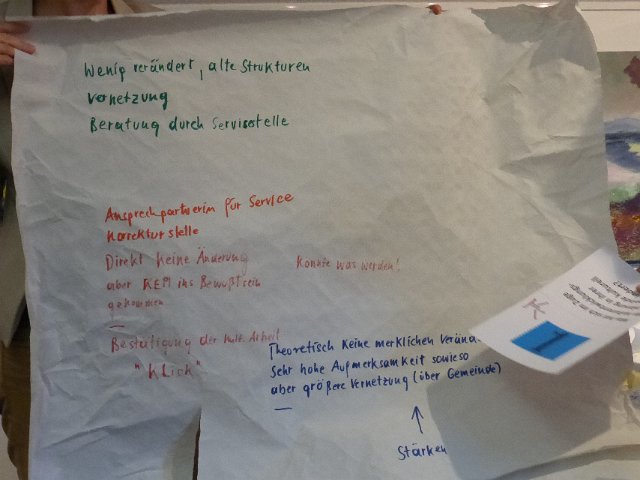 Wenig verändert, alte Strukturen
Vernetzung
Beratung durch Servicestelle
Ansprechpartnerin für Service
Korrekturstelle
Direkt keine Änderung
aber KEM ins Bewußtsein
gekommen
Könnte was werden!
Bestätigung der Arbeit
"Klick"
Theoretisch keine merklichen
Sehr hohe Aufmerksamkeit sowieso
aber größere Vernetzung (über Gemeinde)
Stärken
K
1